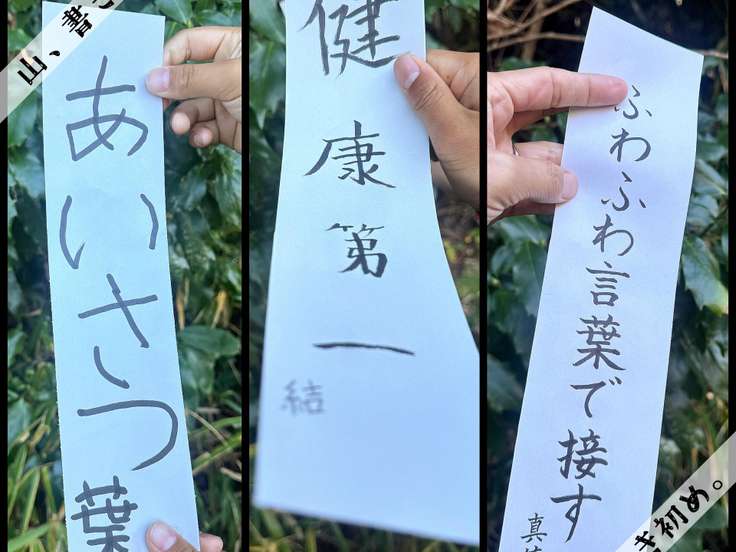 山、書
あいさつ
葉
健康第一
結
ふわふわ言葉で接す
真
初め。